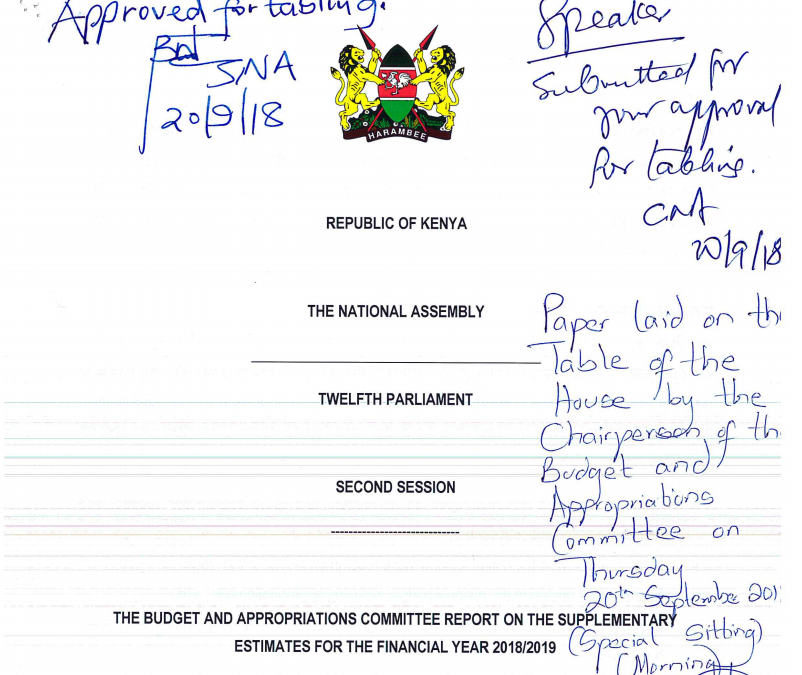 Approved for tabling.
SNA
20/9/18
Speaker
Submitted for
your approval
for tabling.
CNA
20/9/18
HARAMBEE
REPUBLIC OF KENYA
THE NATIONAL ASSEMBLY
TWELFTH PARLIAMENT
SECOND SESSION
Paper laid on th
Table of the
House by the
Chairperson of th
Budget and
Appropriations
Committee on
Thursday
20th September 201
(Special Sitting)
(Morning)
THE BUDGET AND APPROPRIATIONS COMMITTEE REPORT ON THE SUPPLEMENTARY
ESTIMATES FOR THE FINANCIAL YEAR 2018/2019